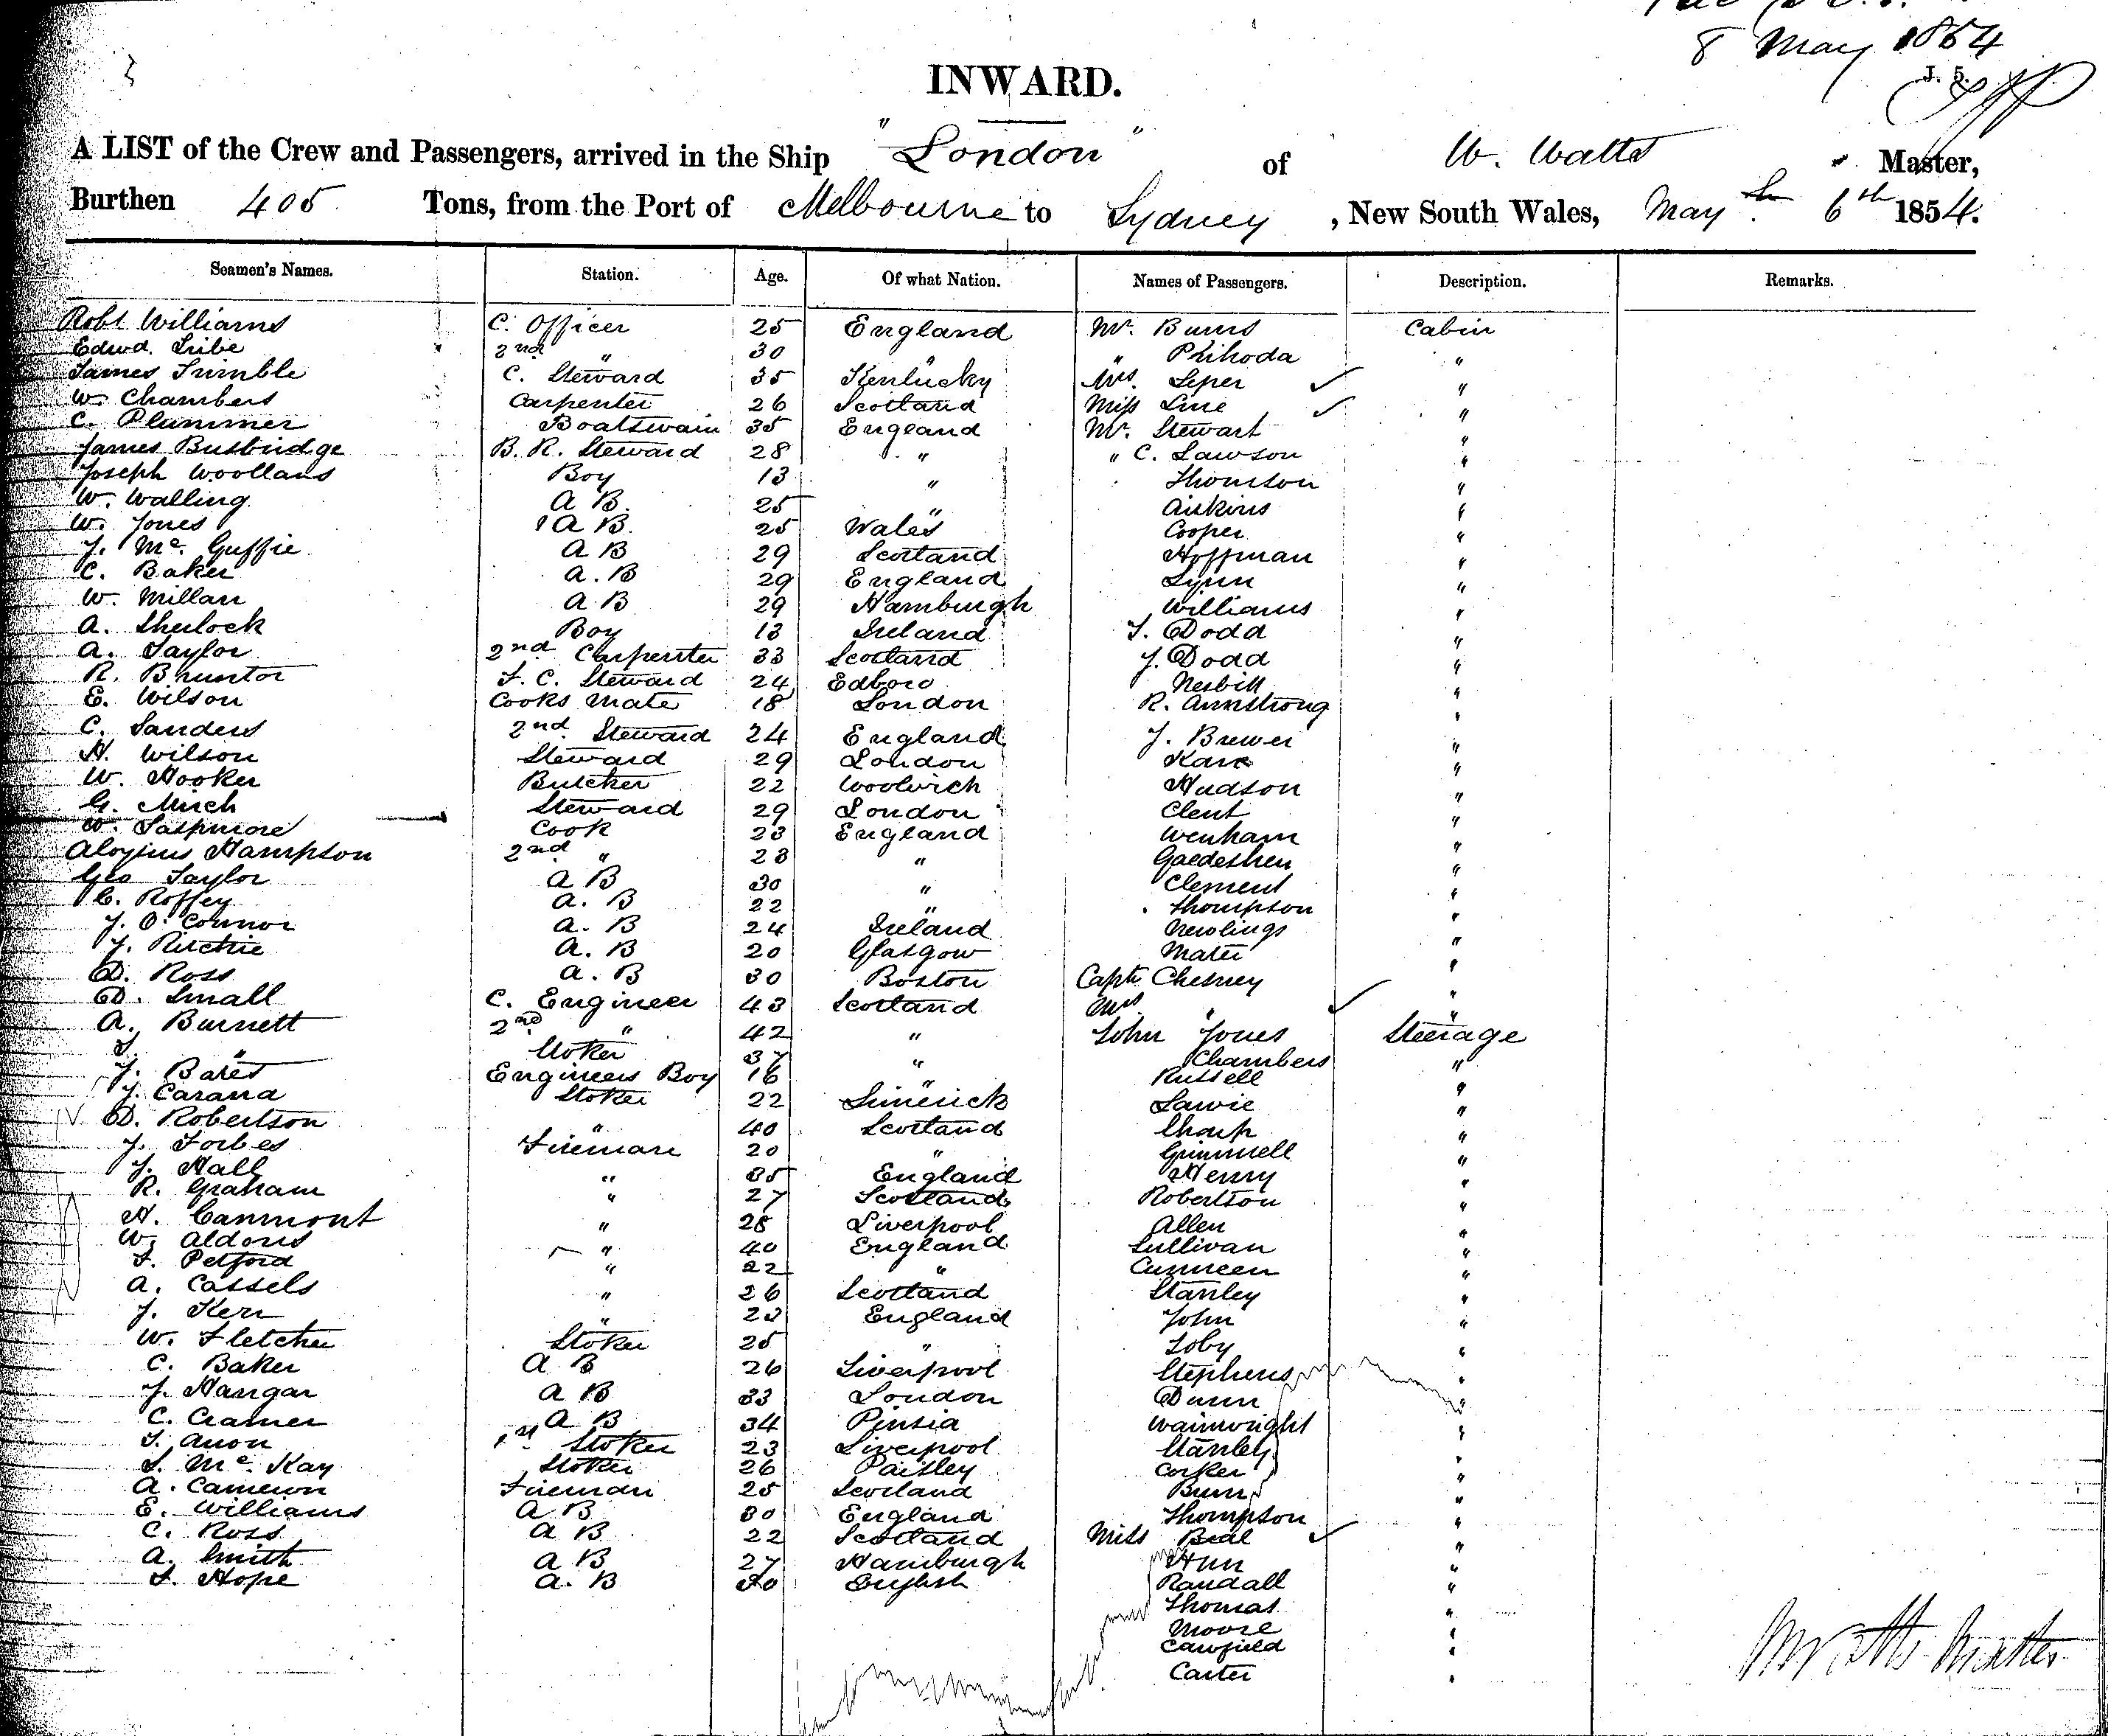 8 May 1854
J. 5.
INWARD.
A LIST of the Crew and Passengers, arrived in the Ship "London" of W. Watts Master,
Burthen 405 Tons, from the Port of Melbourne to Sydney, New South Wales, May 6th 1854.
Seamen's Names. Station. Age. Of what Nation. Names of Passengers. Description. Remarks.
Robt Williams C. Officer 25 England Mr. Burns Cabin
Edwd. Tribe 2nd " 30 " " Prihoda "
James Trimble C. Steward 35 Kentucky Mrs. Leper "
W. Chambers Carpenter 26 Scotland Miss Line "
C. Plummer Boatswain 35 England Mr. Stewart "
James Busbridge B. R. Steward 28 " " C. Lawson "
Joseph Woollans Boy 13 " Thomson "
W. Walling A B. 25 " Aitkins "
W. Jones A B. 25 Wales Cooper "
J. Mc. Guffie A B 29 Scotland Hoffman "
C. Baker A. B 29 England Lynn "
W. Millan A B 29 Hamburgh Williams "
A. Sherlock Boy 13 Ireland T. Dodd "
A. Taylor 2nd Carpenter 33 Scotland J. Dodd "
R. Brunton F. C. Steward 24 Edboro Nesbitt "
E. Wilson Cooks Mate 18 London R. Armstrong "
C. Sanders 2nd Steward 24 England J. Brewer "
H. Wilson Steward 29 London "
W. Hooker Butcher 22 Woolwich Hudson "
G. Much Steward 29 London Clent "
W. Cook 23 England Wenham "
Aloysius Hampson 2nd " 23 " Gaedeshen "
Geo Taylor A B 30 " Clement "
C. Roffey A. B 22 " Thompson "
J. O'Connor A. B 24 Ireland Newlings "
J. Ritchie A. B 20 Glasgow Mater "
D. Ross A. B 30 Boston Captn Chesney "
D. Small C. Engineer 43 Scotland Mrs " "
A. Burnett 2nd " 42 " John Jones Steerage
" Stoker 37 " Chambers "
J. Bates Engineers Boy 16 " Russell "
J. Carana Stoker 22 Limerick Lawie "
D. Robertson " 40 Scotland Sharp "
J. Forbes Fireman 20 " Grimmell "
J. Hall " 35 England Henry "
R. Graham " 27 Scotland Robertson "
H. Canmont " 28 Liverpool Allen "
W. Aldous " 40 England Sullivan "
F. Petford " 22 " Cunneen "
A. Cassels " 26 Scotland Stanley "
J. Kerr " 23 England John "
W. Fletcher Stoker 25 " Toby "
C. Baker A B 26 Liverpool Stephens "
J. Hangar A B 33 London Dunn "
C. Cramer A B 34 Wainwright "
T. Anon 1st Stoker 23 Liverpool Stanley "
Mc. Kay Stoker 26 Paisley Corker "
A. Cameron Fireman 25 Scotland "
E. Williams A B 30 England Thompson "
C. Ross A B 22 Scotland Miss Beal "
A. Smith A B 27 Hamburgh "
T. Hope A. B 20 English Randall "
Thomas "
Moore "
Cawfield "
Carter "
W Watts Master